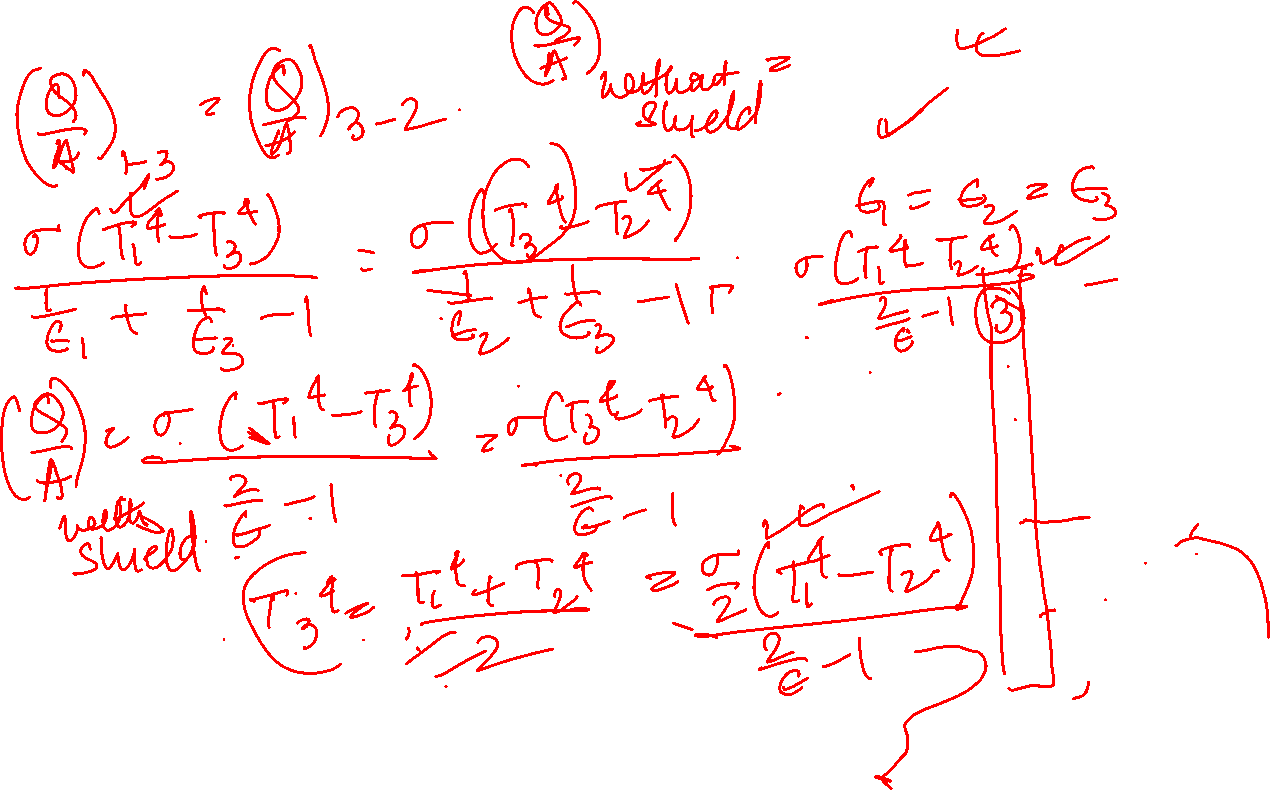 (Q/A)_{1-3} = (Q/A)_{3-2}
(Q/A)_{without shield} =
σ(T_1^4 - T_3^4) / (1/ε_1 + 1/ε_3 - 1) = σ(T_3^4 - T_2^4) / (1/ε_2 + 1/ε_3 - 1)
ε_1 = ε_2 = ε_3
σ(T_1^4 - T_2^4) / (2/ε - 1)
3
(Q/A)_{with shield} = σ(T_1^4 - T_3^4) / (2/ε - 1) = σ(T_3^4 - T_2^4) / (2/ε - 1)
T_3^4 = (T_1^4 + T_2^4) / 2
= σ/2 (T_1^4 - T_2^4) / (2/ε - 1)